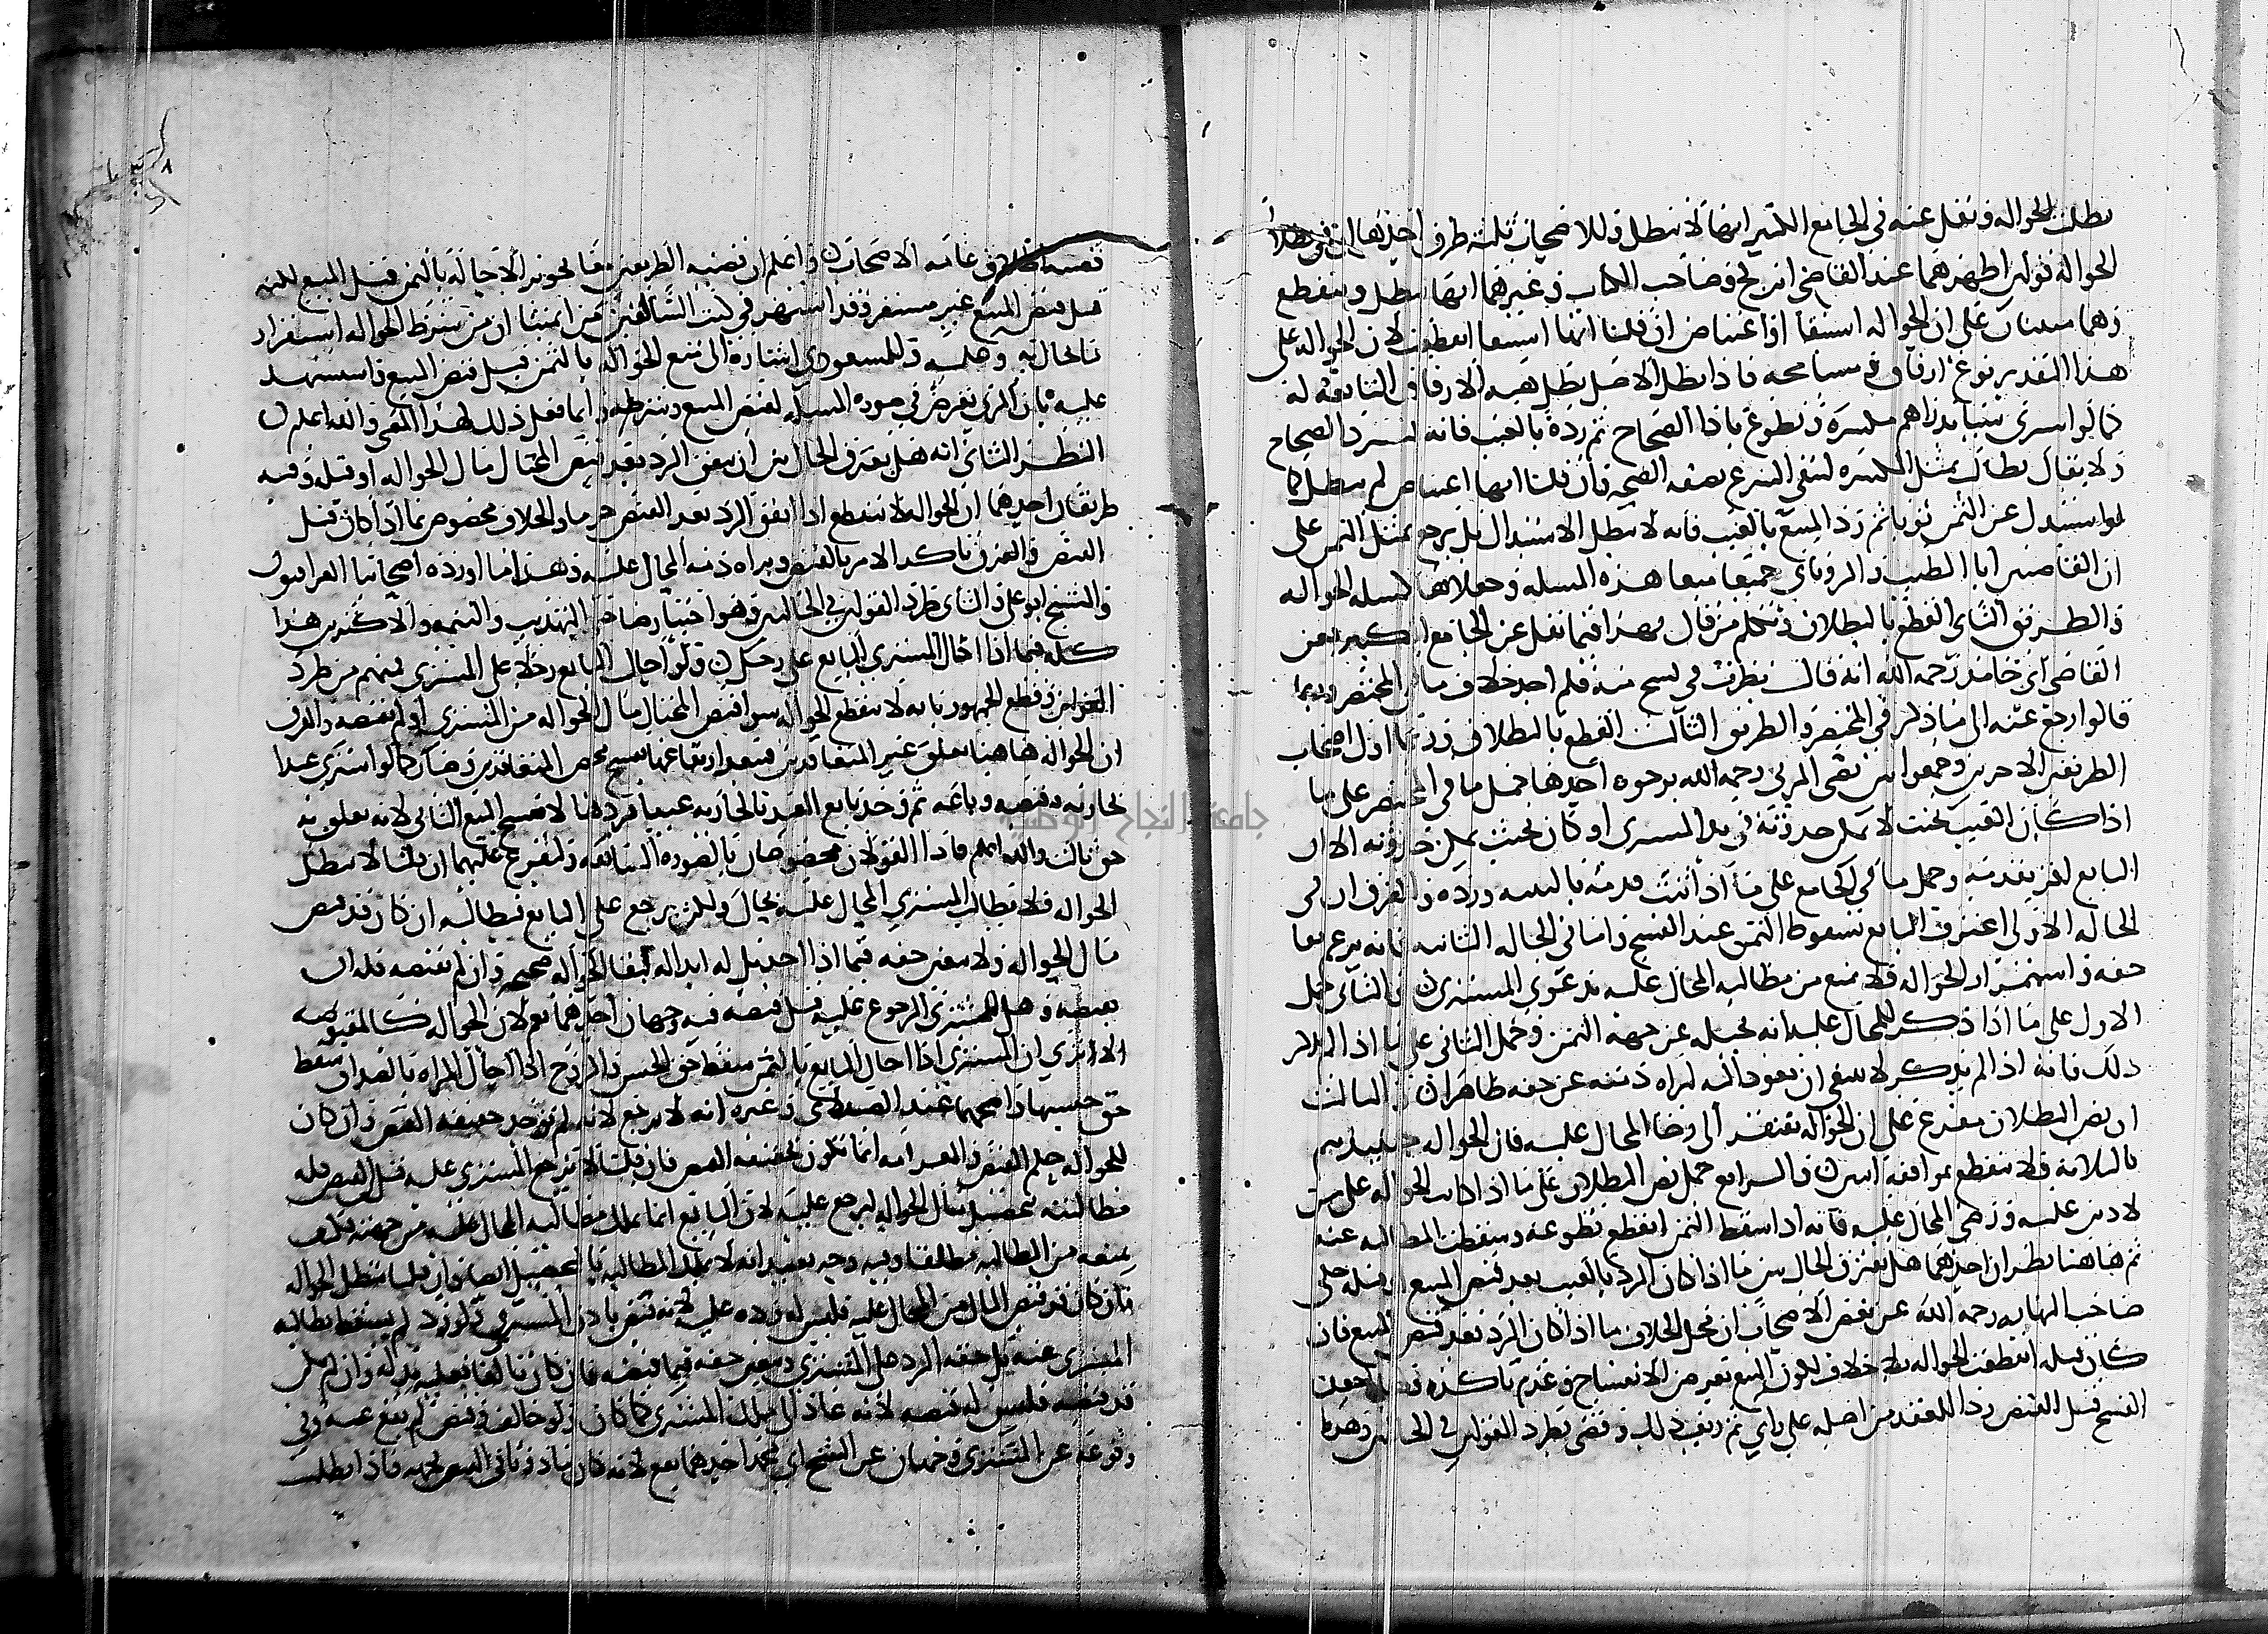 بطلت الحواله ونقل عنه في الجامع الكبير انها لا تبطل وللاصحاب ثلثه طرق احدها ان في بطلان
الحواله قولين اظهرهما عند القاضي ابن كج وصاحب الكتاب وغيرهما انها تبطل وينقطع
وهما مبنيان على ان الحواله استيفا او اعتياض ان قلنا انها استيفا انقطعت لان الحواله على
هذا التقدير نوع ارفاق ومسامحه فاذا بطل الاصل بطل هيه الارفاق التابعه له
كما لو اشترى شيا بدراهم مكسره وتطوع باذا الصحاح ثم رده بالعيب فانه يسترد الصحاح
ولا يقال يطالب بمثل المكسره ليبقى التبرع بصفه الصحه وان قلنا انها اعتياض لم تبطل كما
لو استبدل عن الثمن ثوبا ثم رد المبيع بالعيب فانه لا يبطل الاستبدال بل يرجع بمثل الثمن على
ان القاضيين ابا الطيب والروياني جميعا منعا هذه المسله وجعلاها كمسله الحواله
والطريق الثاني القطع بالبطلان وتكلم من قال بهذا فيما نقل عن الجامع الكبير فعن
القاضي ابي حامد رحمه الله انه قال نظرت في نسخ منه فلم اجد خلاف ما في المختصر وربما
قالوا رجع عنه الى ما ذكر في المختصر والطريق الثالث القطع بالبطلان وردها اول اصحاب
الطريقين الاخرين وجمعوا بين نصي المزني رحمه الله بوجوه احدها حمل ما في المختصر على ما
اذا كان العيب بحيث لا يمكن حدوثه في يد المشتري او كان بحيث يمكن حدوثه الا ان
البايع اقر بقدمه وحمل ما في الجامع على ما اذا اثبت قدمه بالبينه ورده والفرق ان في
الحاله الاولى اعترف البايع بسقوط الثمن عند الفسخ واما في الحاله الثانيه فانه يزعم بقا
حقه واستمرار الحواله فلا يمنع من مطالبه المحال عليه بدعوى المشتري والثاني حمل
الاول على ما اذا ذكر للمحال عليه انه يحيله عن جهه الثمن وحمل الثاني على ما اذا لم يذكر
ذلك فانه اذا لم يذكر لا ينبغي ان يعود اليه لبراه ذمته عن حقه ظاهرا والثالث
ان نص البطلان مفرع على ان الحواله تفتقر الى رضا المحال عليه فان الحواله حينيذ تتم
بالثلاثه فلا تنقطع بموافقه اثنين والرابع حمل نص البطلان على ما اذا كانت الحواله على من
لا دين عليه ورضي المحال عليه فانه اذا سقط الثمن انقطع تطوعه وسقطت المطالبه عنه
ثم هاهنا نظران احدهما هل يفترق الحال بين ما اذا كان الرد بالعيب بعد قبض المبيع او قبله حكى
صاحب النهايه رحمه الله عن بعض الاصحاب ان محل الخلاف ما اذا كان الرد بعد قبض المبيع فان
كان قبله انقطعت الحواله بلا خلاف لكون المبيع بعرض الانفساخ وعدم تاكده
الفسخ قبل القبض ردا للعقد من اصله على راي ثم زيف ذلك وقضى بطرد القولين في الحالين وهذا
قضيه اطلاق عامه الاصحاب واعلم ان قضيه الطريقين معا تجويز الاحاله بالثمن قبل المبيع لكنه
قبل قبض المبيع غير مستقر وقد اشتهر في كتب الشافعيين من ايمتنا ان من شرط الحواله استقرار
ما يحال به وعليه وللمسعودي اشاره الى منع الحواله بالثمن قبل قبض المبيع واستشهد
عليه بان المزني تعرض في صوره المسله لقبض المبيع وشرطه وانما فعل ذلك لهذا المعنى والله اعلم
النظر الثاني انه هل يفترق الحال بين ان يتفق الرد بعد قبض المحتال مال الحواله او قبله وفيه
طريقان احدهما ان الحواله لا تنقطع اذا اتفق الرد بعد القبض جزما والخلاف مخصوص بما اذا كان قبل
القبض والفرق تاكد الامر بالقبض وبراه ذمه المحال عليه وهذا ما اورده اصحابنا العراقيون
والشيخ ابو علي والثاني طرد القولين في الحالين وهو اختيار صاحب التهذيب والتتمه والاكثرين هذا
كله فيما اذا احال المشتري البايع على رجل ولو احال البايع رجلا على المشتري فمنهم من طرد
القولين وقطع الجمهور بانه لا تنقطع الحواله سوا قبض المحتال مال الحواله من المشتري او لم يقبضه والفرق
ان الحواله هاهنا تعلق غير المتعاقدين فيبعد ارتفاعها بفسخ يختص المتعاقدين وصار كما لو اشترى عبدا
بجاريه وقبضه وباعه ثم وجد بايع العبد بالجاريه عيبا فردها لا يفسخ البيع الثاني لانه تعلق به
حق ثالث والله اعلم فاذا القولان مخصوصان بالصوره السابقه وليفرع عليهما ان قلنا لا تبطل
الحواله فلا يطالب المشتري المحال عليه بحال ولكن يرجع على البايع فيطالبه ان كان قد قبض
مال الحواله ولا يتعين حقه فيما اذا اخذ بل له ابداله لبقا الحواله صحيحه وان لم يقبضه فله ان
يقبضه وهل للمشتري الرجوع عليه قبل قبضه فيه وجهان احدهما نعم لان الحواله كالمقبوضه
الا ترى ان المشتري اذا احال البايع بالثمن سقط حق الحبس والزوج اذا احال المراه بالصداق سقط
حق حبسها واصحهما عند الصيدلاني وغيره انه لا يرجع لانه لم يوجد حقيقه القبض وان كان
للحواله حكم القبض والغرامه انما تكون لحقيقه القبض فان قلنا لا يرجع المشتري عليه قبل القبض فله
مطالبته بتحصيل مال الحواله ليرجع عليه لان البايع انما يملك مطالبه المحال عليه من جهته فكيف
يمنعه من المطالبه مطلقا وفيه وجه بعيد انه لا يملك المطالبه بالتحصيل ايضا وان قلنا تبطل الحواله
فان كان قد قبض المال من المحال عليه فليس له رده عليه لانه قبض باذن المشتري ولو رد لم تسقط مطالبه
المشتري عنه بل حقه الرد على المشتري ويتعين حقه فيما قبضه فان كان تالفا فعليه بدله وان لم يكن
قد قبضه فليس له قبضه لانه عاد الى ملك المشتري كما كان ولو خالف وقبض لم يقع عنه وفي
وقوعه عن المشتري وجهان عن الشيخ ابي محمد احدهما يقع لانه كان ماذونا في القبض بجهه فاذا بطلت